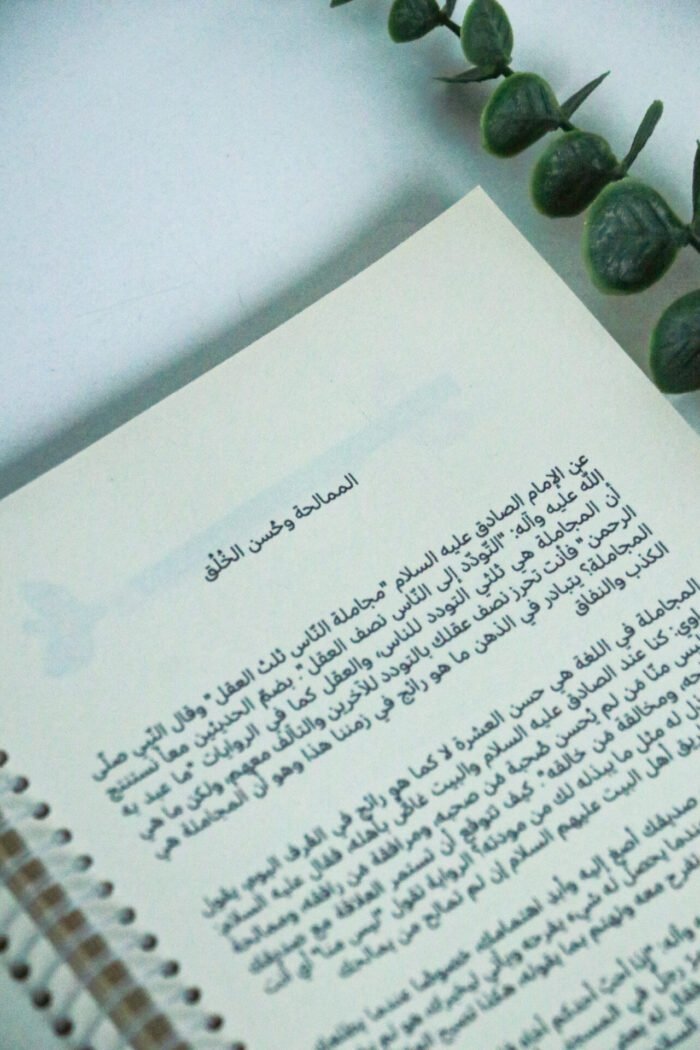 الممالحة وحُسن الخُلُق
عن الإمام الصادق عليه السلام "مجاملة النّاس ثلث العقل" وقال النّبي صلّى
الله عليه وآله: "التّودّد إلى النّاس نصف العقل". بضمّ الحديثين معاً نستنتج
أن المجاملة هي ثلثي التودد للناس، والعقل كما في الروايات "ما عبد به
الرحمن" فأنت تحرز نصف عقلك بالتودد للآخرين والتآلف معهم، ولكن ما هي
المجاملة؟ يتبادر في الذهن ما هو رائج في زمننا هذا وهو أن المجاملة هي
الكذب والنفاق
المجاملة في اللغة هي حسن العشرة لا كما هو رائج في العُرف اليوم، يقول
كنا عند الصادق عليه السلام والبيت غاصّ بأهله، فقال عليه السلام:
منّا مَن لم يُحسن صُحبة مَن صحبه، ومرافقة من رافقه، وممالحة
ومخالفة مَن خالفه". كيف تتوقع أن تستمر العلاقة مع صديقك
له مثل ما يبذله لك من مودته؟ الرواية تقول "ليس منا" أي أنت
أهل البيت عليهم السلام إن لم تمالح من يمالحك
صديقك أصغِ إليه وأبدِ اهتمامك، خصوصًا عندما
يحصل له شيء يفرحه ويأتي ليخبرك، هو لم
معه وتهتم بما يقوله، هكذا تصبح
وآله: "إذا أحبّ أحدكم أخاه
رجل في المسجد